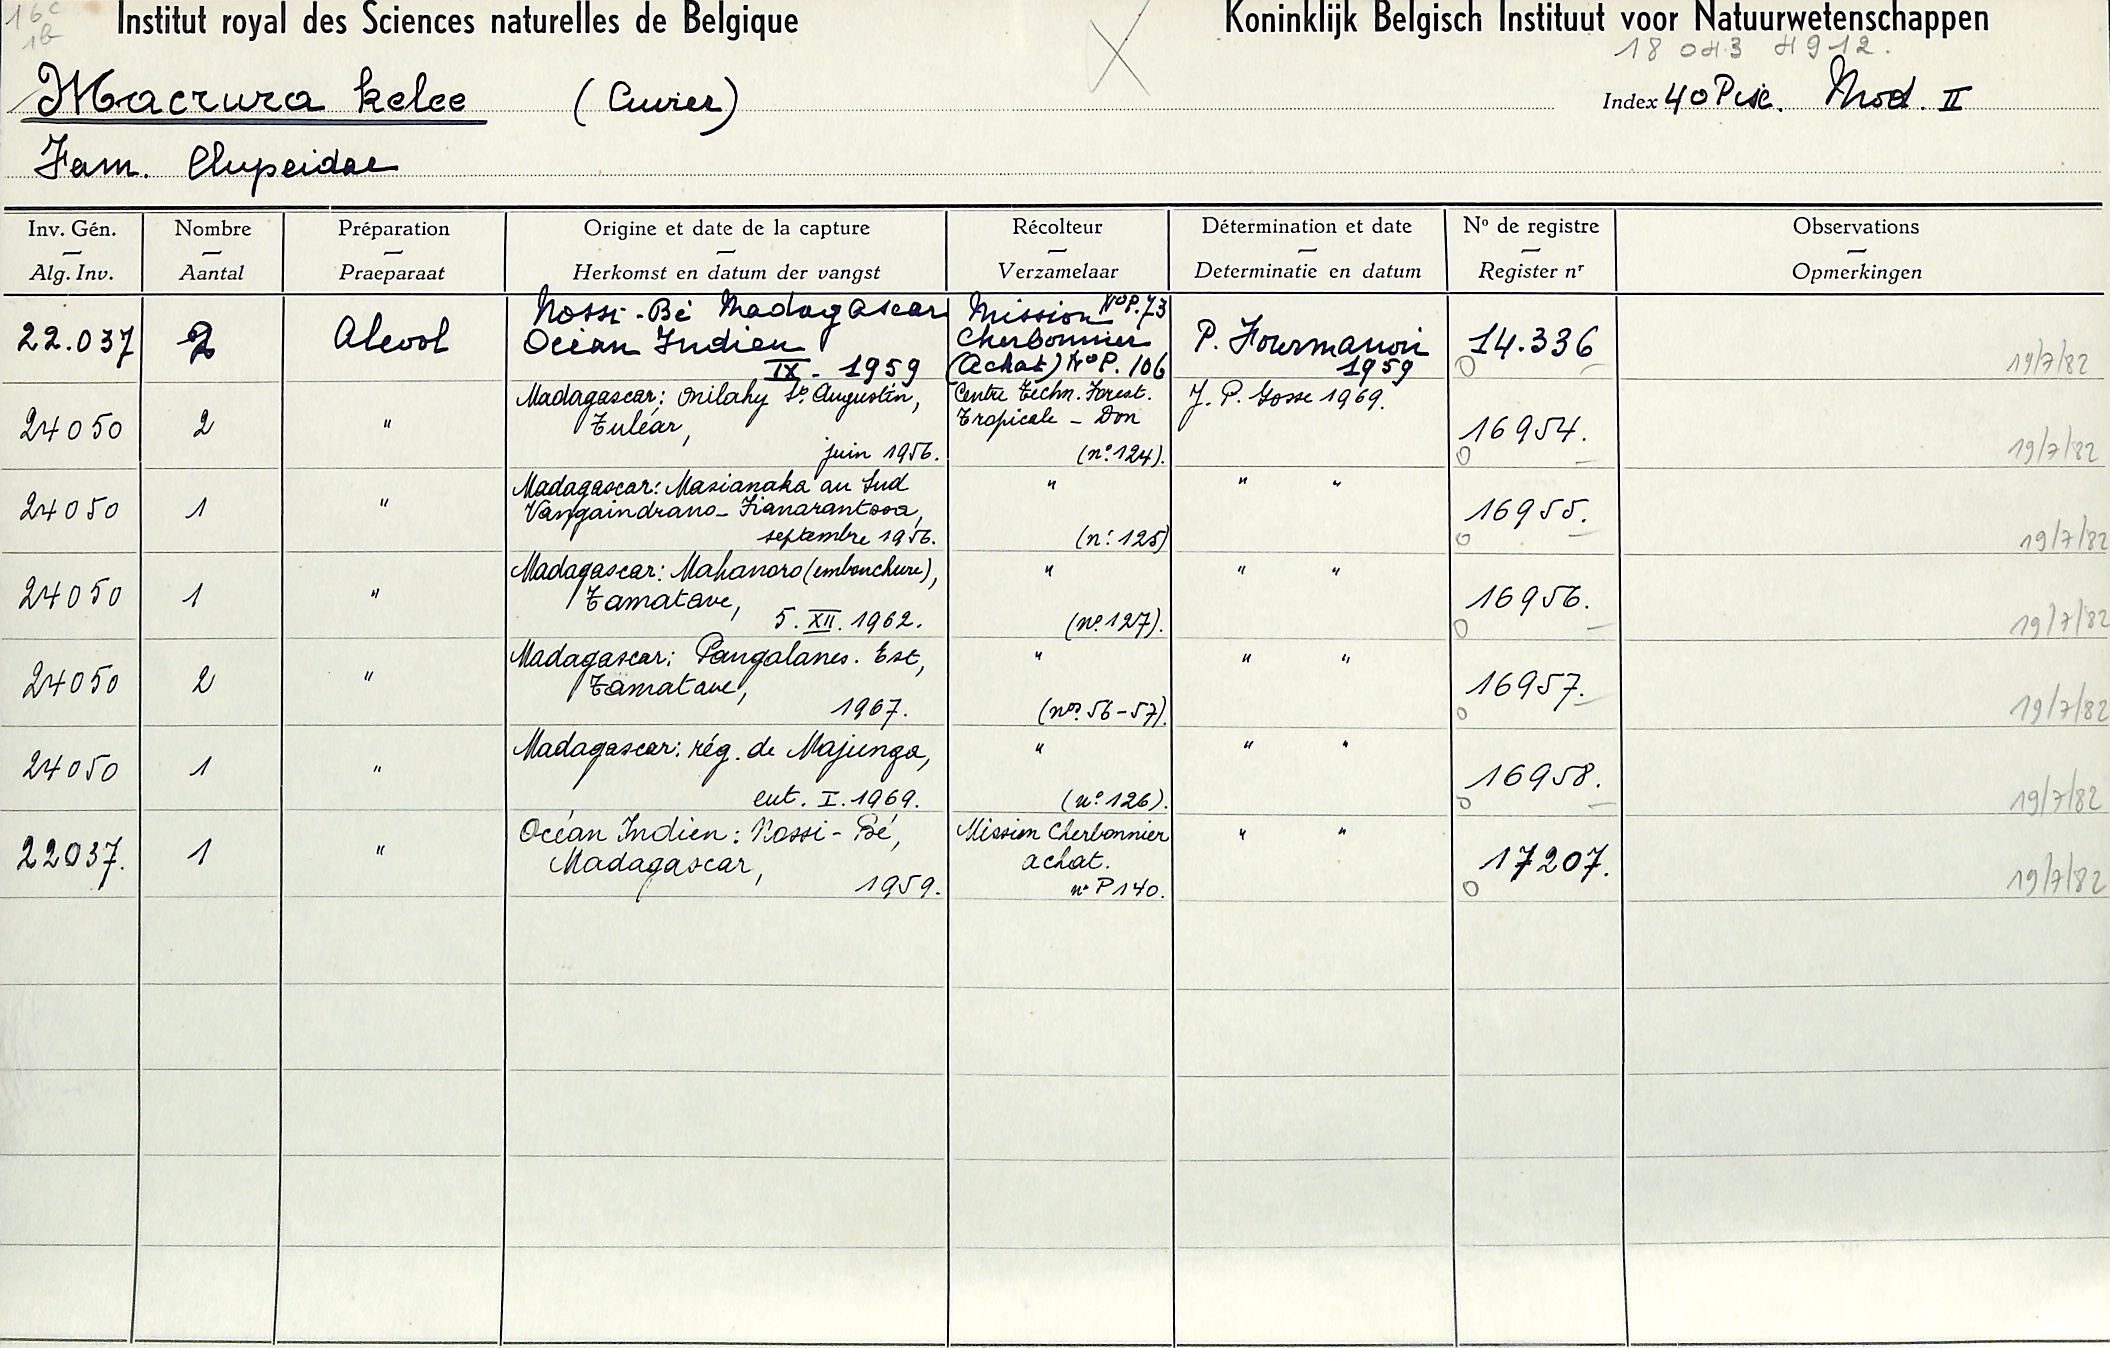 16c
1b
Institut royal des Sciences naturelles de Belgique
Koninklijk Belgisch Instituut voor Natuurwetenschappen
18 043 4912.
Macrura kelee (Cuvier)
Index 40 Pisc. Mod. II
Fam. Clupeidae
Inv. Gén. Nombre Préparation Origine et date de la capture Récolteur Détermination et date No de registre Observations
Alg. Inv. Aantal Praeparaat Herkomst en datum der vangst Verzamelaar Determinatie en datum Register nr Opmerkingen
Nossi-Bé Madagascar Mission No P.73
22.037 2 Alcool Océan Indien Cherbonnier P. Fourmanoir 14.336
IX - 1959 (Achat) No P. 106 1959 19/7/82
Madagascar: Onilahy St Augustin, Centre Techn. Forest. J. P. Gosse 1969.
24050 2 " Tuléar, Tropicale - Don 16954.
juin 1956. (no 124). 19/7/82
Madagascar: Masianaka au Sud " " "
24050 1 " Vangaindrano - Fianarantsoa, 16955.
septembre 1956. (no 125) 19/7/82
Madagascar: Mahanoro (embouchure), " " "
24050 1 " Tamatave, 16956.
5. XII. 1962. (no 127). 19/7/82
Madagascar: Pangalanes. Est, " " "
24050 2 " Tamatave, 16957.
1967. (nos 56-57). 19/7/82
Madagascar: rég. de Majunga, " " "
24050 1 " 16958.
eut. I. 1969. (no 126). 19/7/82
Océan Indien: Nossi-Bé, Mission Cherbonnier " "
22037. 1 " Madagascar, achat. 17207.
1959. no P 140. 19/7/82